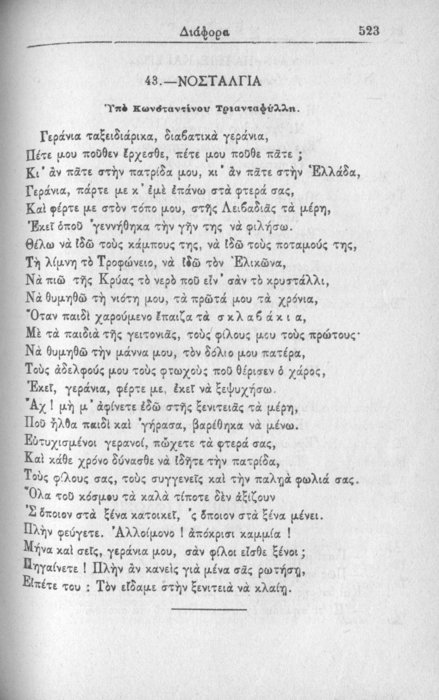 Διάφορα 523
43.—ΝΟΣΤΑΛΓΙΑ
Ὑπὸ Κωνσταντίνου Τριανταφύλλη.
Γεράνια ταξειδιάρικα, διαβατικὰ γεράνια,
Πέτε μου ποῦθεν ἔρχεσθε, πέτε μου ποῦθε πᾶτε ;
Κι' ἂν πᾶτε στὴν πατρίδα μου, κι' ἂν πᾶτε στὴν Ἑλλάδα,
Γεράνια, πάρτε με κ' ἐμὲ ἐπάνω στὰ φτερά σας,
Καὶ φέρτε με στὸν τόπο μου, στῆς Λειβαδιᾶς τὰ μέρη,
Ἐκεῖ ὁποῦ 'γεννήθηκα τὴν γῆν της νὰ φιλήσω.
Θέλω νὰ ἰδῶ τοὺς κάμπους της, νὰ ἰδῶ τοὺς ποταμούς της,
Τὴ λίμνη τὸ Τροφώνειο, νὰ ἰδῶ τὸν Ἑλικῶνα,
Νὰ πιῶ τῆς Κρύας τὸ νερὸ ποῦ εἶν' σὰν τὸ κρυστάλλι,
Νὰ θυμηθῶ τὴ νιότη μου, τὰ πρῶτά μου τὰ χρόνια,
Ὅταν παιδὶ χαρούμενο ἔπαιζα τὰ σκλαβάκια,
Μὲ τὰ παιδιὰ τῆς γειτονιᾶς, τοὺς φίλους μου τοὺς πρώτους·
Νὰ θυμηθῶ τὴν μάννα μου, τὸν δόλιο μου πατέρα,
Τοὺς ἀδελφούς μου τοὺς φτωχοὺς ποῦ θέρισεν ὁ χάρος,
Ἐκεῖ, γεράνια, φέρτε με, ἐκεῖ νὰ ξεψυχήσω.
Ἂχ ! μὴ μ' ἀφίνετε ἐδῶ στῆς ξενιτειᾶς τὰ μέρη,
Ποῦ ἦλθα παιδὶ καὶ 'γήρασα, βαρέθηκα νὰ μένω.
Εὐτυχισμένοι γερανοί, πὤχετε τὰ φτερά σας,
Καὶ κάθε χρόνο δύνασθε νὰ ἰδῆτε τὴν πατρίδα,
Τοὺς φίλους σας, τοὺς συγγενεῖς καὶ τὴν παληὰ φωλιά σας.
Ὅλα τοῦ κόσμου τὰ καλὰ τίποτε δὲν ἀξίζουν
Σ ὅποιον στὰ ξένα κατοικεῖ, 'ς ὅποιον στὰ ξένα μένει.
Πλὴν φεύγετε. Ἀλλοίμονο ! ἀπόκρισι καμμία !
Μήνα καὶ σεῖς, γεράνια μου, σὰν φίλοι εἶσθε ξένοι ;
Πηγαίνετε ! Πλὴν ἂν κανεὶς γιὰ μένα σᾶς ρωτήσῃ,
Εἰπέτε του : Τὸν εἴδαμε στὴν ξενιτειὰ νὰ κλαίῃ.